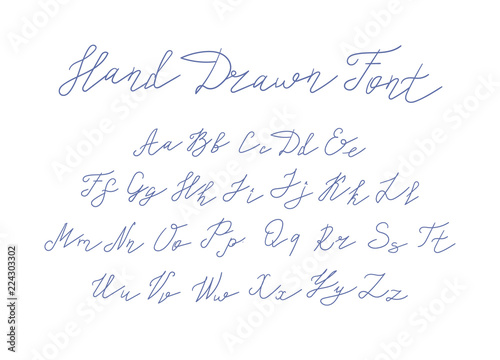 Hand Drawn Font
Aa Bb Cc Dd Ee
Ff Gg Hh Ii Jj Kk Ll
Mm Nn Oo Pp Qq Rr Ss Tt
Uu Vv Ww Xx Yy Zz
Adobe Stock | #224303302